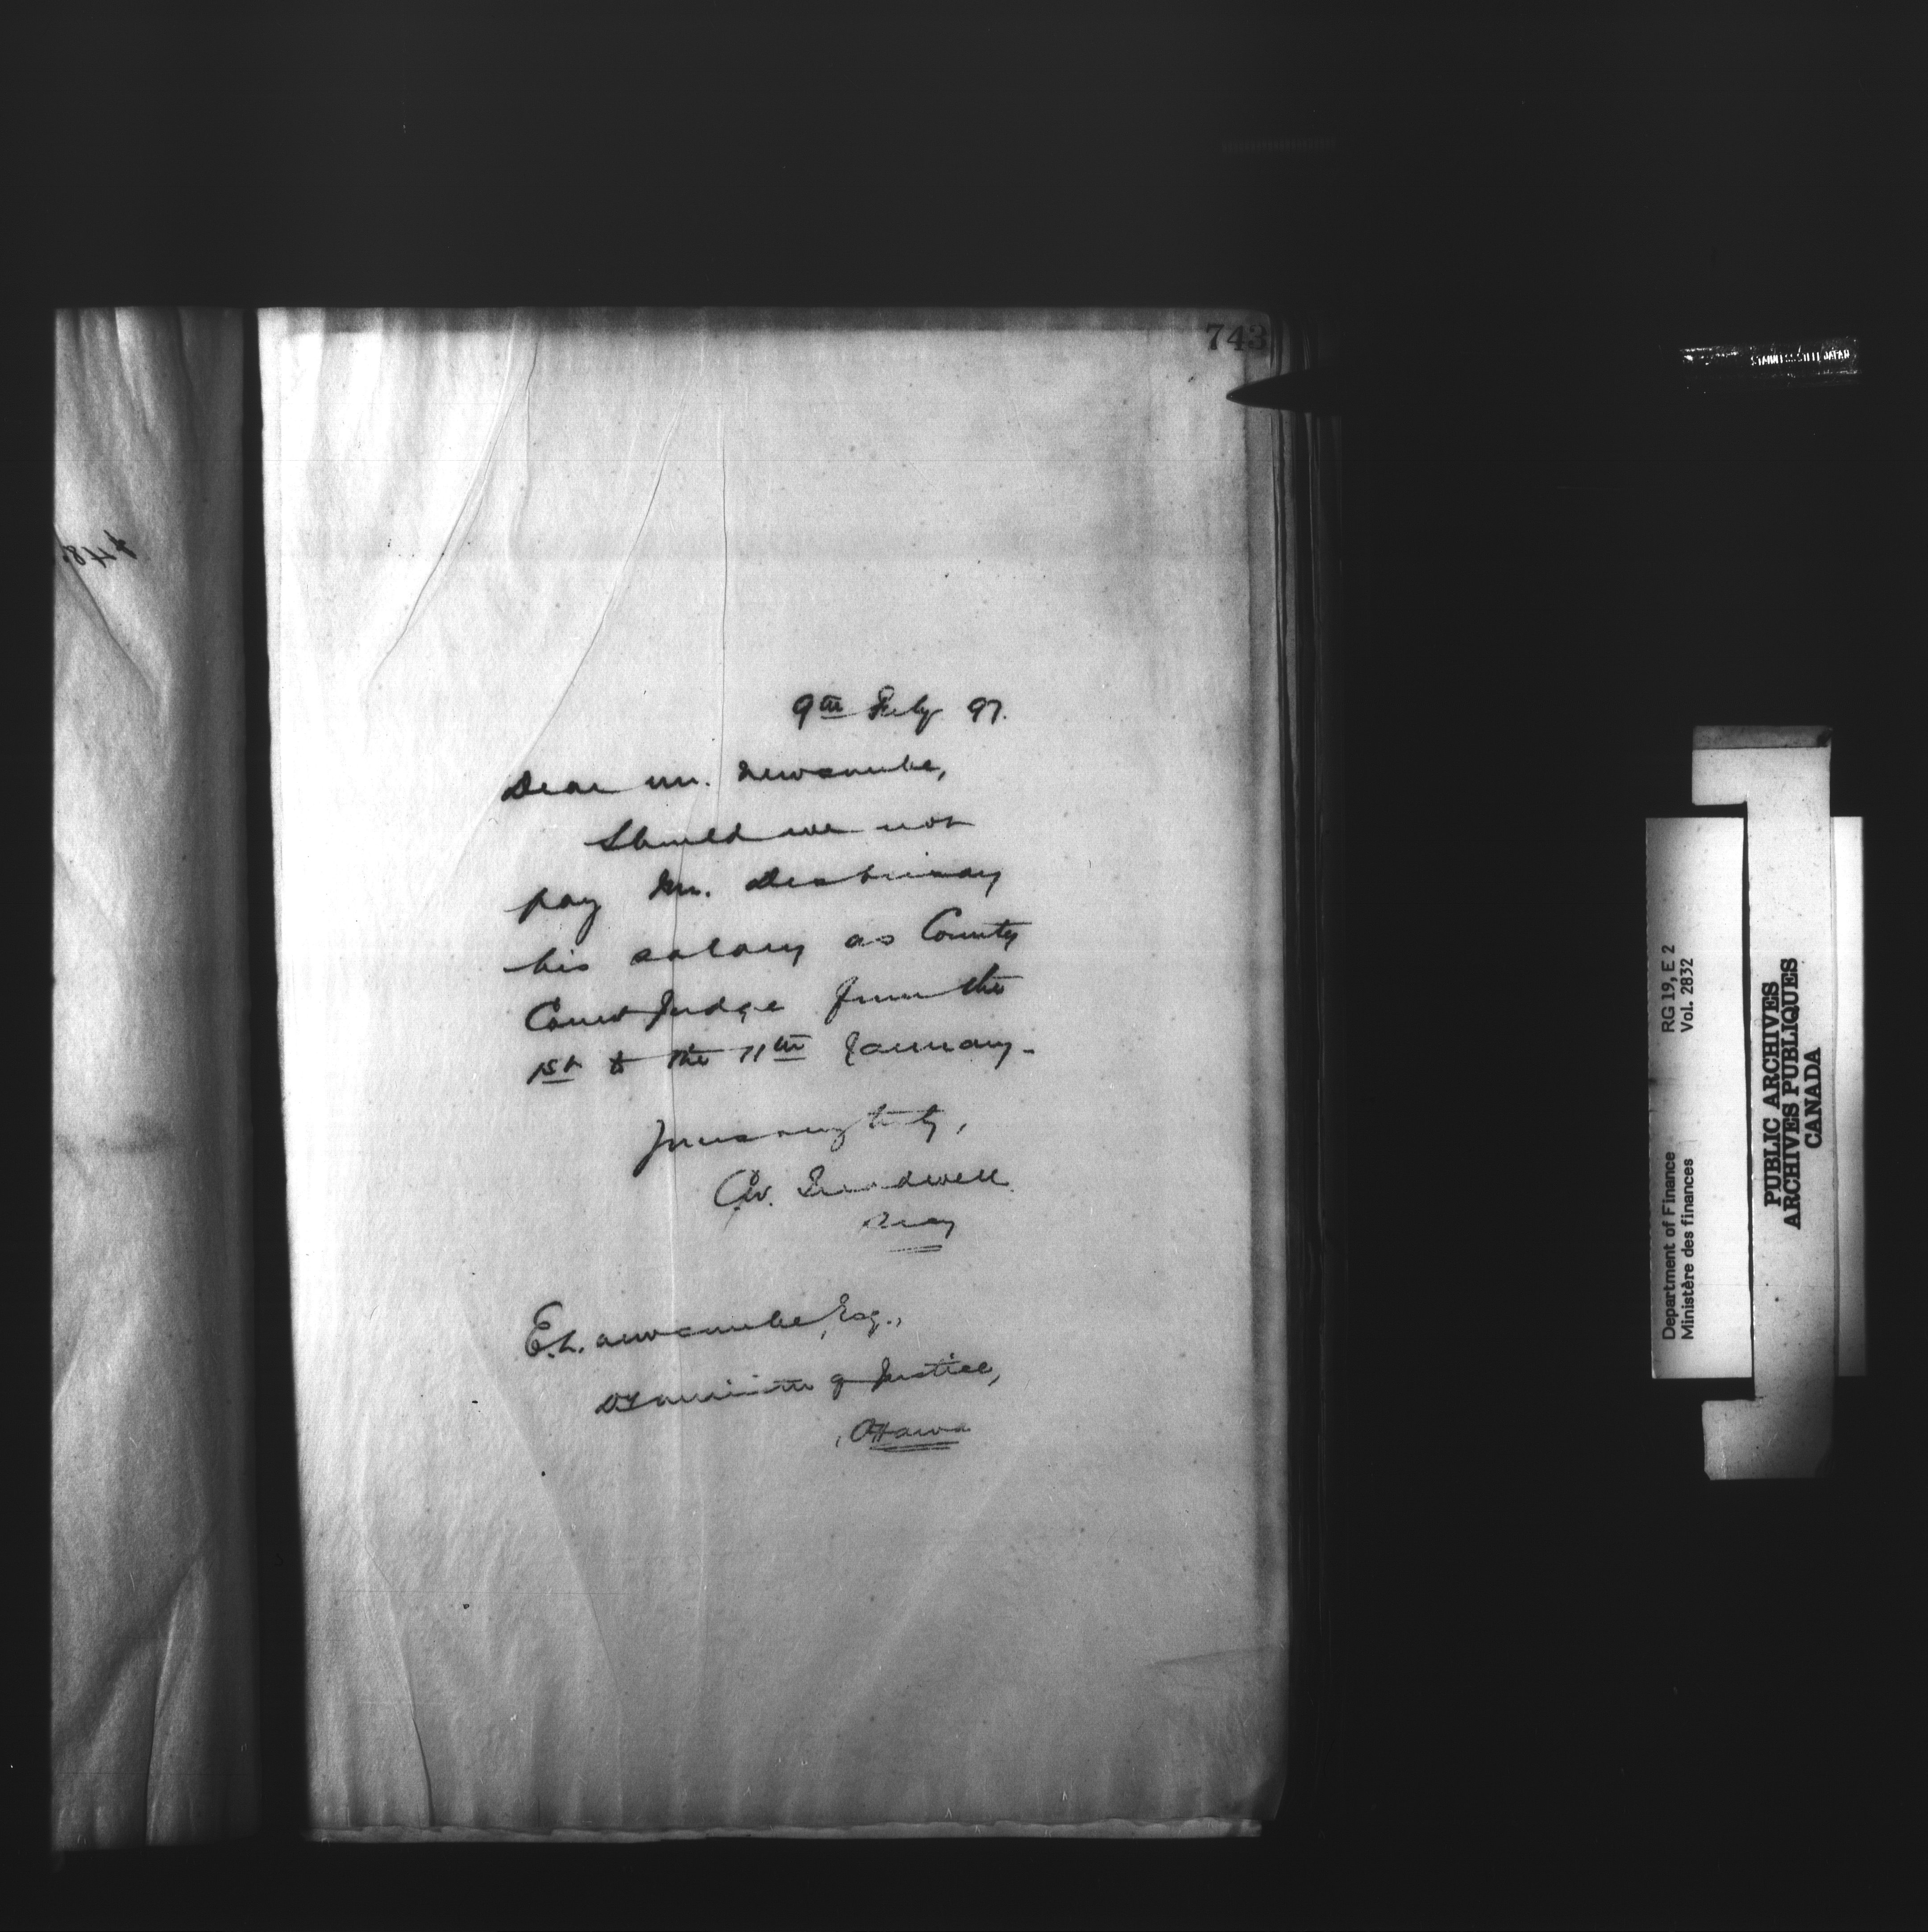 743
9th July 97.
Dear Mr. Newcombe,
Should we not
pay Mr. Desbrisay
his salary as County
Court Judge from the
1st to the 11th January.
Yours very truly,
C.W. Treadwell
E.L. Newcombe, Esq.,
Dy Minister of Justice,
Ottawa
Department of Finance RG 19, E 2
Ministère des finances Vol. 2832
PUBLIC ARCHIVES
ARCHIVES PUBLIQUES
CANADA